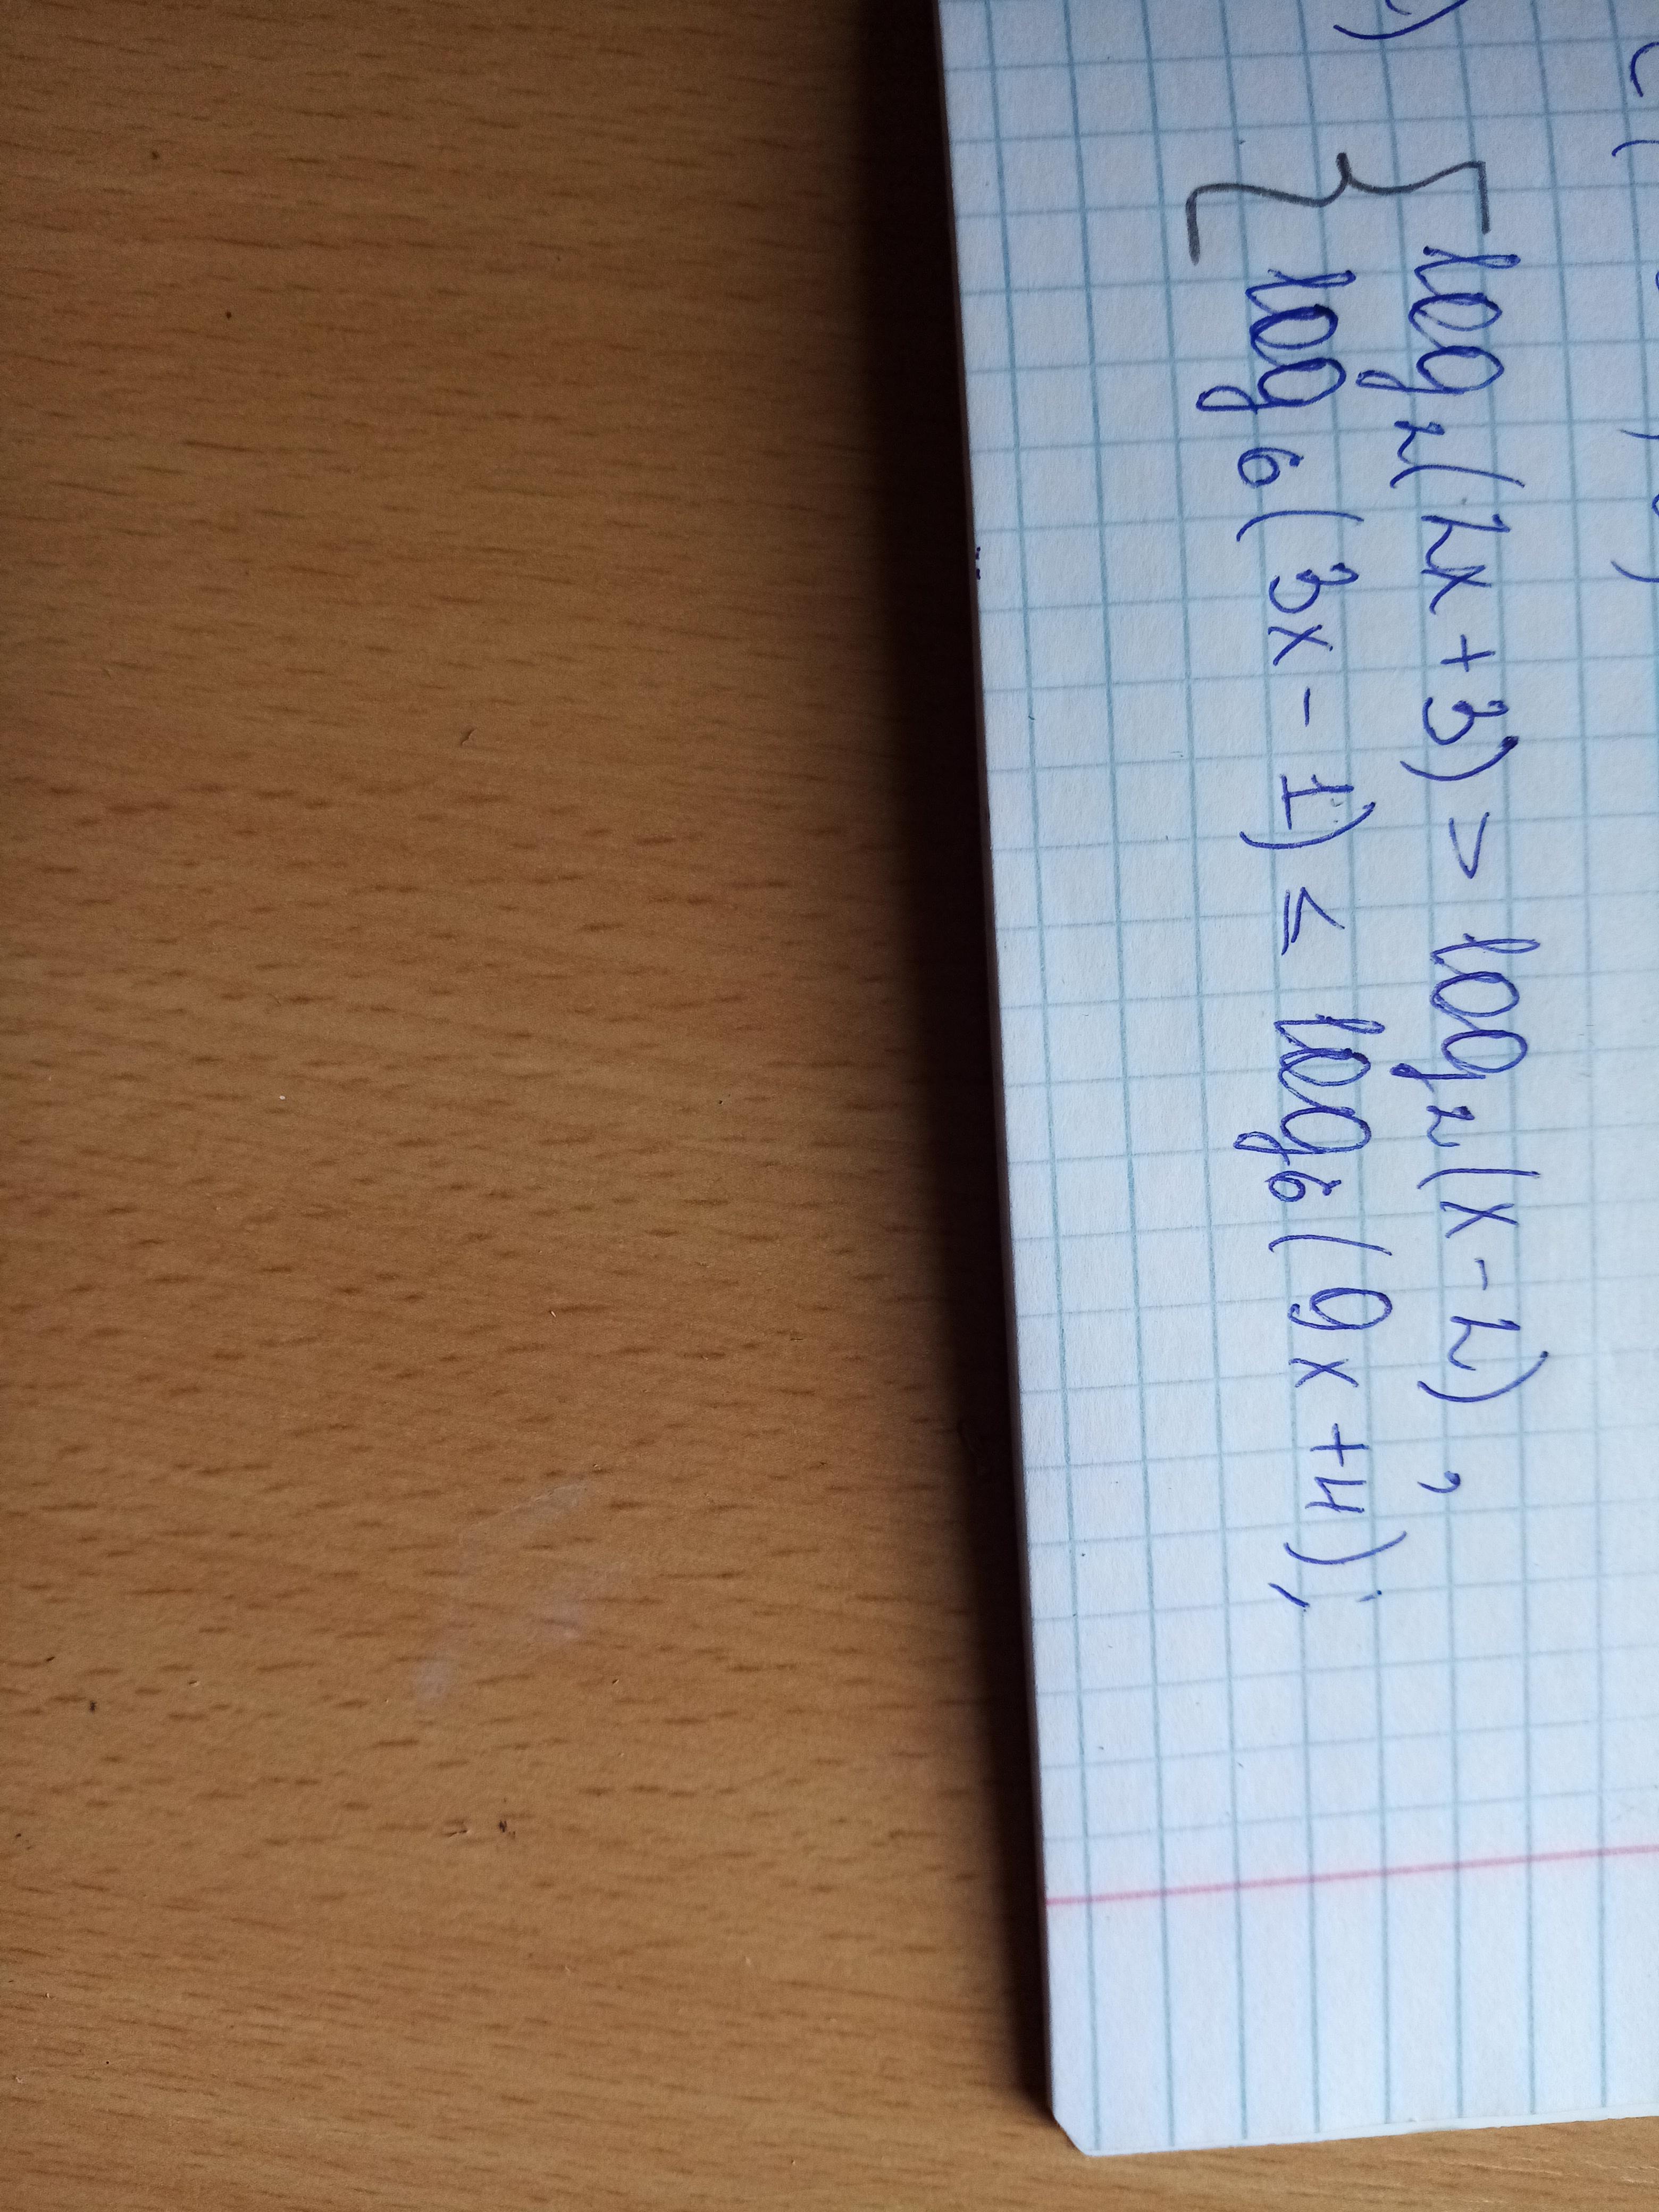 { log₂(2x+3) > log₂(x-2),
log₆(3x-1) ≤ log₆(9x+4);